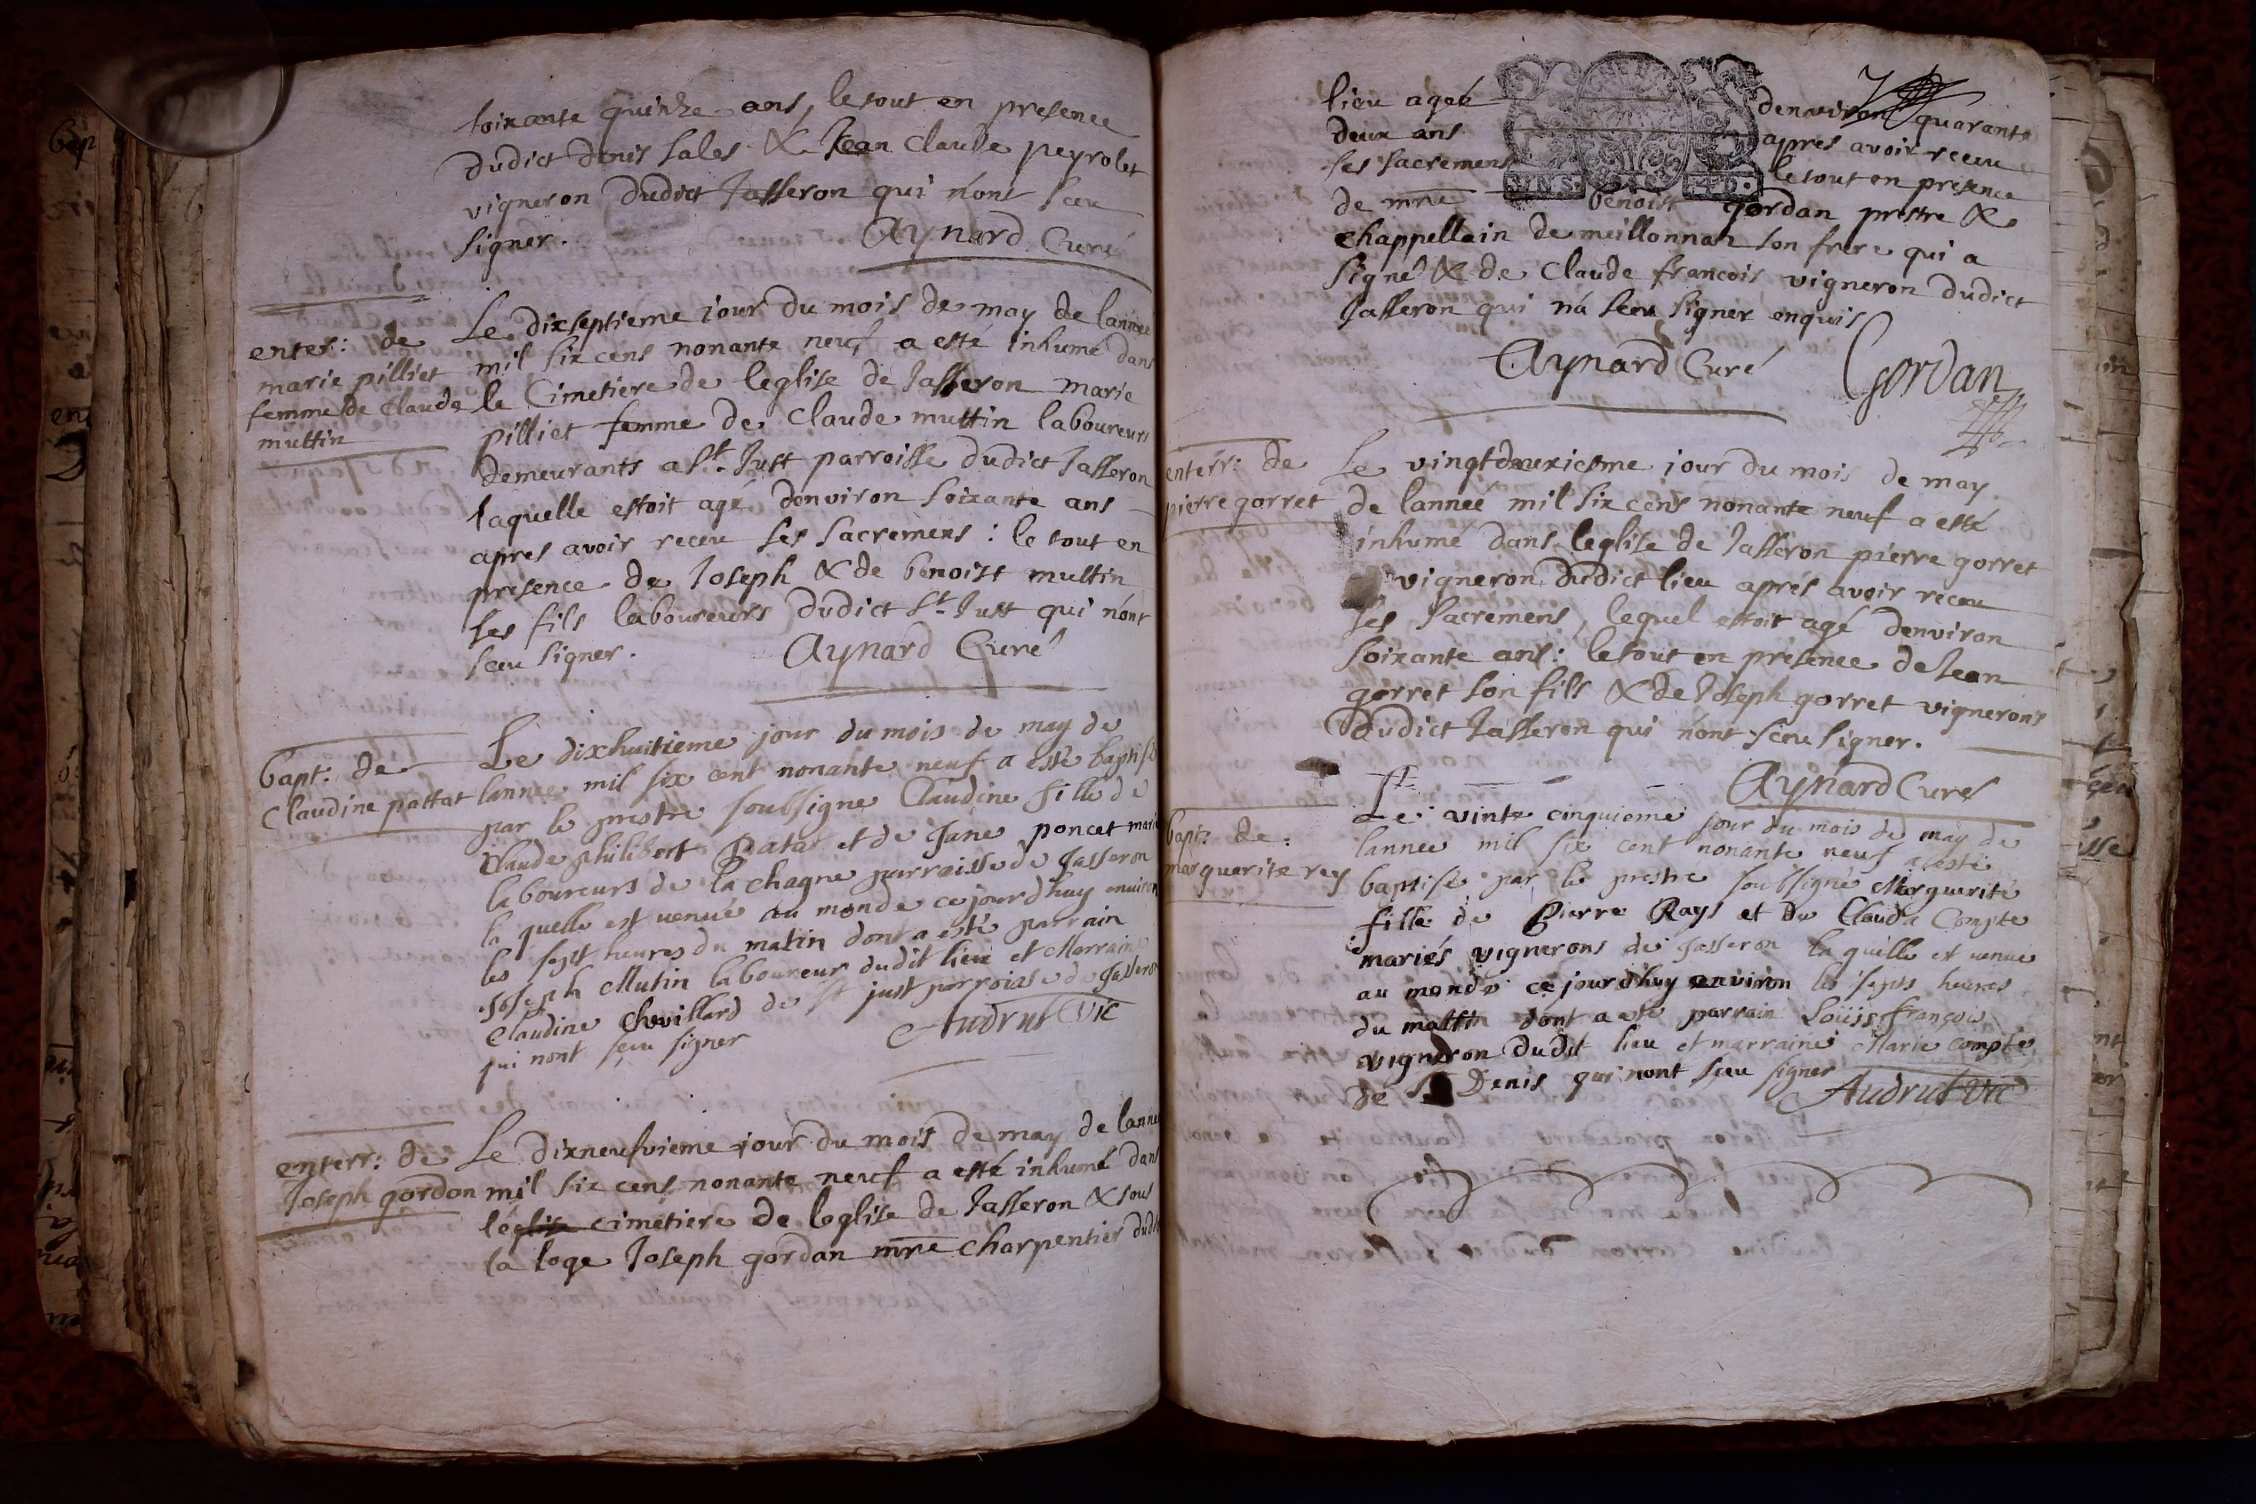 soixante quinze ans, le tout en presence
dudict denis sales & Jean Claude peyrolet
vigneron dudict Jasseron qui n'ont sceu
signer. Aynard Curé
enter: de
marie pilliet
femme de Claude
muttin
Le dixseptieme jour du mois de may de lannee
mil six cens nonante neuf a esté inhumé dans
le Cimetiere de leglise de Jasseron marie
pilliet femme de Claude muttin laboureurs
demeurants a St. Just parroisse dudict Jasseron
laquelle estoit agé denviron soixante ans
apres avoir receu ses sacremens : le tout en
presence de Joseph & de benoist muttin
ses fils laboureurs dudict St. Just qui n'ont
sceu signer. Aynard Curé
bapt: de
Claudine pattat
Le dixhuitieme jour du mois de may de
lannee mil six cent nonante neuf a esté baptisé
par le prestre soubsigne Claudine fille de
Claude philibert Patat et de Jane poncet mariés
laboureurs de la chagne parraisse de Jasseron
la quelle est venuë au monde ce jourdhuy environ
les sept heures du matin dont a esté parrain
Joseph Mutin laboureur dudit lieu et Marraine
Claudine Chevillard de St just parroisse de Jasseron
qui nont sceu signer Audrut Vic
enterr: de
Joseph gordan
Le dixneufvieme jour du mois de may de lannee
mil six cens nonante neuf a esté inhumé dans
léglise cimetiere de leglise de Jasseron & sous
la loge Joseph gordan mre charpentier dudit
lieu ageé denviron quarante
deux ans apres avoir receu
ses sacremens le tout en presence
de mre benoist gordan prestre &
chappellain de meillonnaz son frere qui a
signé & de Claude françois vigneron dudict
Jasseron qui n'a sceu signer enquis
Aynard Curé Gordan
enterr: de
pierre gorret
Le vingtdeuxiesme jour du mois de may
de lanneé mil six cens nonante neuf a esté
inhumé dans leglise de Jasseron pierre gorret
vigneron dudict lieu aprés avoir receu
ses sacremens, lequel estoit agé denviron
soixante ans : le tout en présence de Jean
gorret son fils & de Joseph gorret vignerons
dudict Jasseron qui n'ont sceu signer.
Aynard Curé
bapt: de:
marguerite rey
Le vinte cinquieme jour du mois de may de
lannee mil six cent nonante neuf a esté
baptisé par le prestre soubsigné Marguerite
fille de Pierre Rays et de Clauda Compte
mariés vignerons de Jasseron la quelle est venue
au monde ce jourdhuy environ les septs heures
du mattin dont a esté parrain Loüis françois
vigneron dudit lieu et marraine Marie compte
de St Denis qui nont sceu signer
Audrut vic